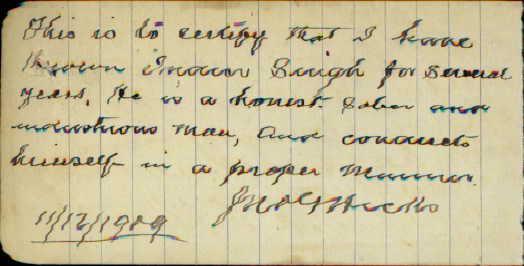 This is to certify that I have
known Singh for several
years, He is a honest. Sober and
industrious man, and conducts
himself in a proper Manner.
11/12/1909